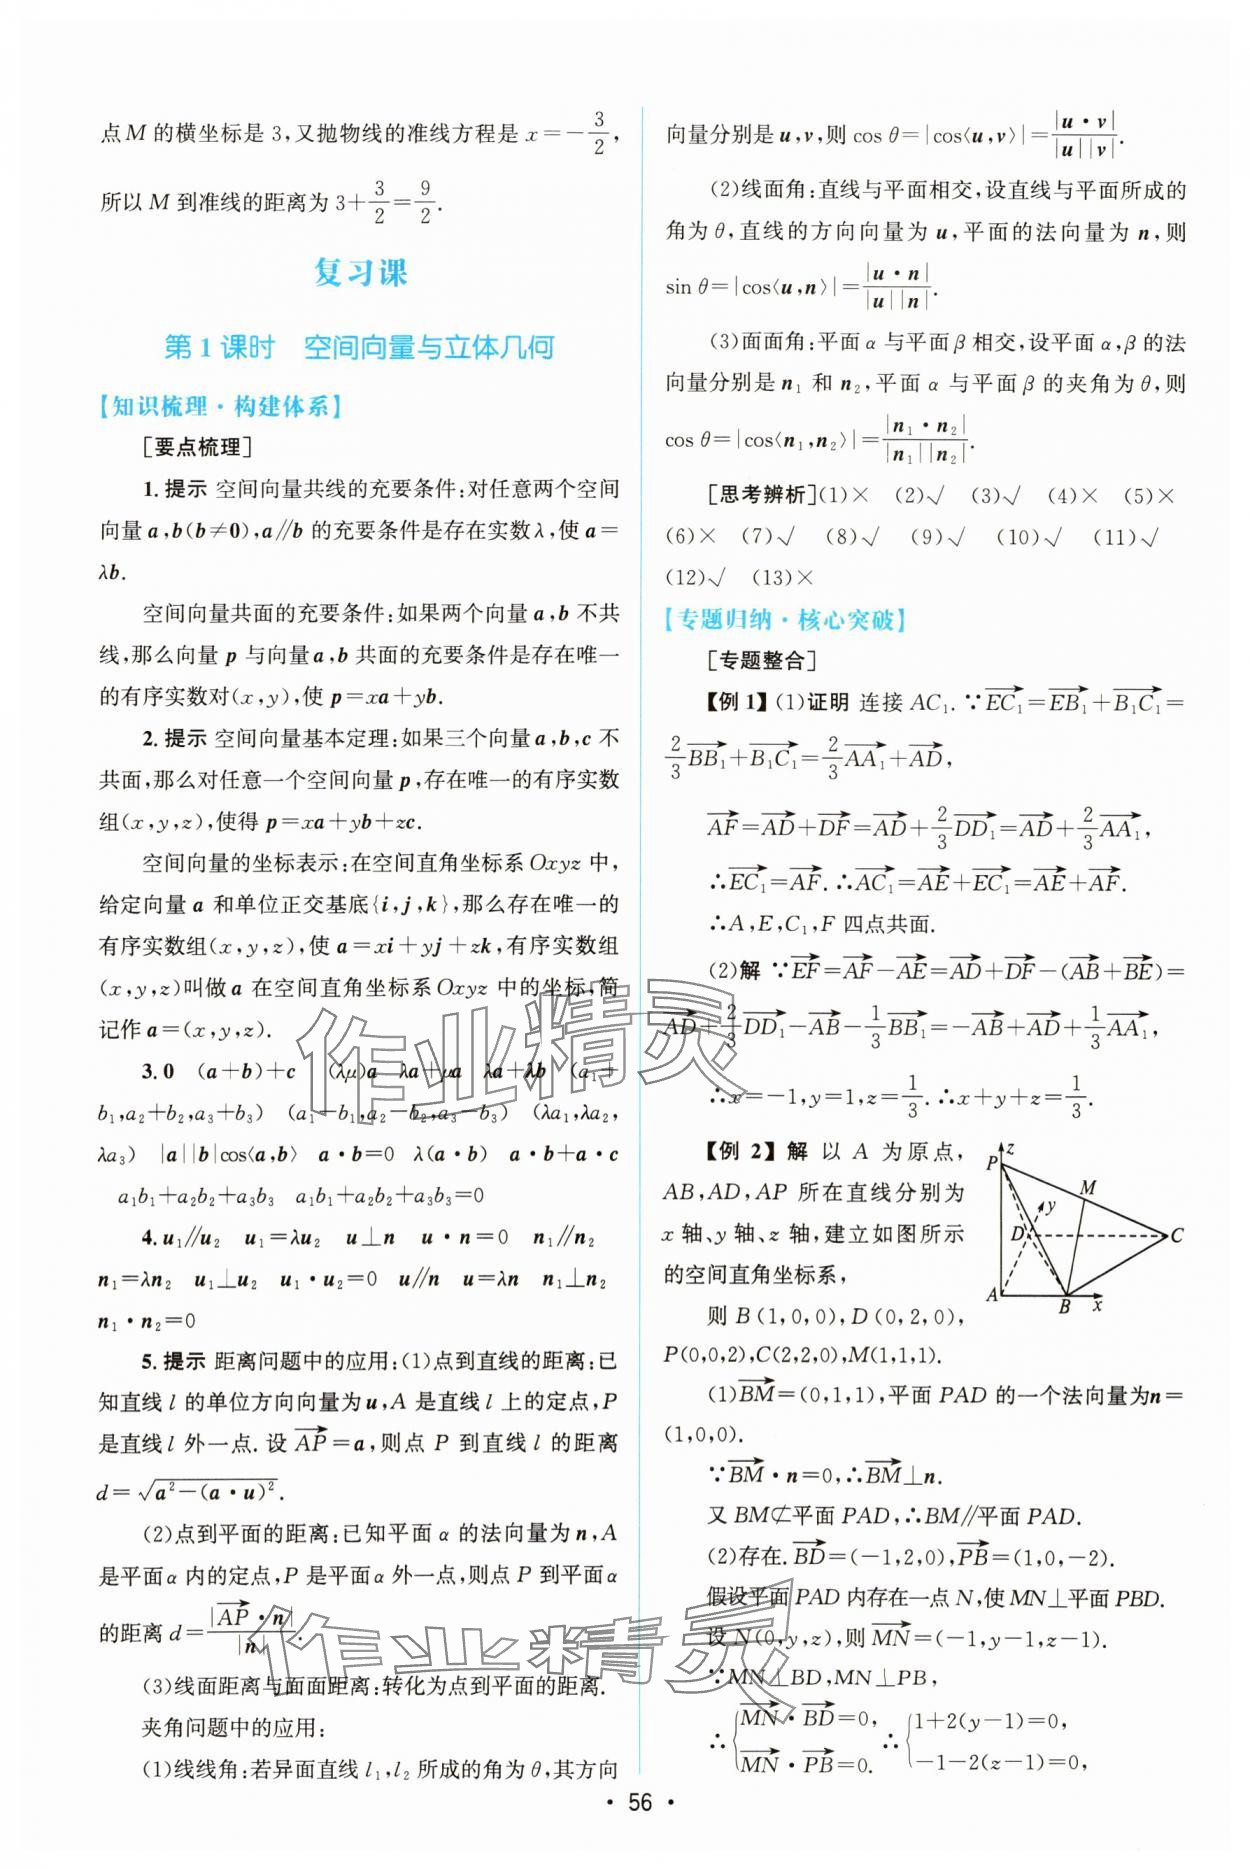 点 M 的横坐标是 3,又抛物线的准线方程是 x=-3/2,
所以 M 到准线的距离为 3+3/2=9/2.
复习课
第 1 课时　空间向量与立体几何
【知识梳理·构建体系】
[要点梳理]
1. 提示 空间向量共线的充要条件:对任意两个空间
向量 a,b(b≠0),a∥b 的充要条件是存在实数 λ,使 a=
λb.
空间向量共面的充要条件:如果两个向量 a,b 不共
线,那么向量 p 与向量 a,b 共面的充要条件是存在唯一
的有序实数对(x,y),使 p=xa+yb.
2. 提示 空间向量基本定理:如果三个向量 a,b,c 不
共面,那么对任意一个空间向量 p,存在唯一的有序实数
组(x,y,z),使得 p=xa+yb+zc.
空间向量的坐标表示:在空间直角坐标系 Oxyz 中,
给定向量 a 和单位正交基底{i,j,k},那么存在唯一的
有序实数组(x,y,z),使 a=xi+yj+zk,有序实数组
(x,y,z)叫做 a 在空间直角坐标系 Oxyz 中的坐标,简
记作 a=(x,y,z).
3. 0　(a+b)+c　(λμ)a　λa+μa　λa+λb　(a₁+
b₁,a₂+b₂,a₃+b₃)　(a₁-b₁,a₂-b₂,a₃-b₃)　(λa₁,λa₂,
λa₃)　|a||b|cos⟨a,b⟩　a·b=0　λ(a·b)　a·b+a·c
a₁b₁+a₂b₂+a₃b₃　a₁b₁+a₂b₂+a₃b₃=0
4. u₁∥u₂　u₁=λu₂　u⊥n　u·n=0　n₁∥n₂
n₁=λn₂　u₁⊥u₂　u₁·u₂=0　u∥n　u=λn　n₁⊥n₂
n₁·n₂=0
5. 提示 距离问题中的应用:(1)点到直线的距离:已
知直线 l 的单位方向向量为 u,A 是直线 l 上的定点,P
是直线 l 外一点. 设 \overrightarrow{AP}=a,则点 P 到直线 l 的距离
d=√(a²-(a·u)²).
(2)点到平面的距离:已知平面 α 的法向量为 n,A
是平面 α 内的定点,P 是平面 α 外一点,则点 P 到平面 α
的距离 d=|\overrightarrow{AP}·n|/|n|.
(3)线面距离与面面距离:转化为点到平面的距离.
夹角问题中的应用:
(1)线线角:若异面直线 l₁,l₂ 所成的角为 θ,其方向
向量分别是 u,v,则 cos θ=|cos⟨u,v⟩|=|u·v|/(|u||v|).
(2)线面角:直线与平面相交,设直线与平面所成的
角为 θ,直线的方向向量为 u,平面的法向量为 n,则
sin θ=|cos⟨u,n⟩|=|u·n|/(|u||n|).
(3)面面角:平面 α 与平面 β 相交,设平面 α,β 的法
向量分别是 n₁ 和 n₂,平面 α 与平面 β 的夹角为 θ,则
cos θ=|cos⟨n₁,n₂⟩|=|n₁·n₂|/(|n₁||n₂|).
[思考辨析](1)×　(2)√　(3)√　(4)×　(5)×
(6)×　(7)√　(8)√　(9)√　(10)√　(11)√
(12)√　(13)×
【专题归纳·核心突破】
[专题整合]
【例 1】(1)证明 连接 AC₁. ∵\overrightarrow{EC₁}=\overrightarrow{EB₁}+\overrightarrow{B₁C₁}=
2/3\overrightarrow{BB₁}+\overrightarrow{B₁C₁}=2/3\overrightarrow{AA₁}+\overrightarrow{AD},
\overrightarrow{AF}=\overrightarrow{AD}+\overrightarrow{DF}=\overrightarrow{AD}+2/3\overrightarrow{DD₁}=\overrightarrow{AD}+2/3\overrightarrow{AA₁},
∴\overrightarrow{EC₁}=\overrightarrow{AF}. ∴\overrightarrow{AC₁}=\overrightarrow{AE}+\overrightarrow{EC₁}=\overrightarrow{AE}+\overrightarrow{AF}.
∴A,E,C₁,F 四点共面.
(2)解 ∵\overrightarrow{EF}=\overrightarrow{AF}-\overrightarrow{AE}=\overrightarrow{AD}+\overrightarrow{DF}-(\overrightarrow{AB}+\overrightarrow{BE})=
\overrightarrow{AD}+2/3\overrightarrow{DD₁}-\overrightarrow{AB}-1/3\overrightarrow{BB₁}=-\overrightarrow{AB}+\overrightarrow{AD}+1/3\overrightarrow{AA₁},
∴x=-1,y=1,z=1/3. ∴x+y+z=1/3.
【例 2】解 以 A 为原点,
AB,AD,AP 所在直线分别为
x 轴、y 轴、z 轴,建立如图所示
的空间直角坐标系,
z
P
M
y
D
C
A
B
x
则 B(1,0,0),D(0,2,0),
P(0,0,2),C(2,2,0),M(1,1,1).
(1)\overrightarrow{BM}=(0,1,1),平面 PAD 的一个法向量为 n=
(1,0,0).
∵\overrightarrow{BM}·n=0,∴\overrightarrow{BM}⊥n.
又 BM⊄平面 PAD,∴BM∥平面 PAD.
(2)存在. \overrightarrow{BD}=(-1,2,0),\overrightarrow{PB}=(1,0,-2).
假设平面 PAD 内存在一点 N,使 MN⊥平面 PBD.
设 N(0,y,z),则 \overrightarrow{MN}=(-1,y-1,z-1).
∵MN⊥BD,MN⊥PB,
∴{\overrightarrow{MN}·\overrightarrow{BD}=0, ∴{1+2(y-1)=0,
\overrightarrow{MN}·\overrightarrow{PB}=0. -1-2(z-1)=0,
作业精灵
作业精灵
· 56 ·